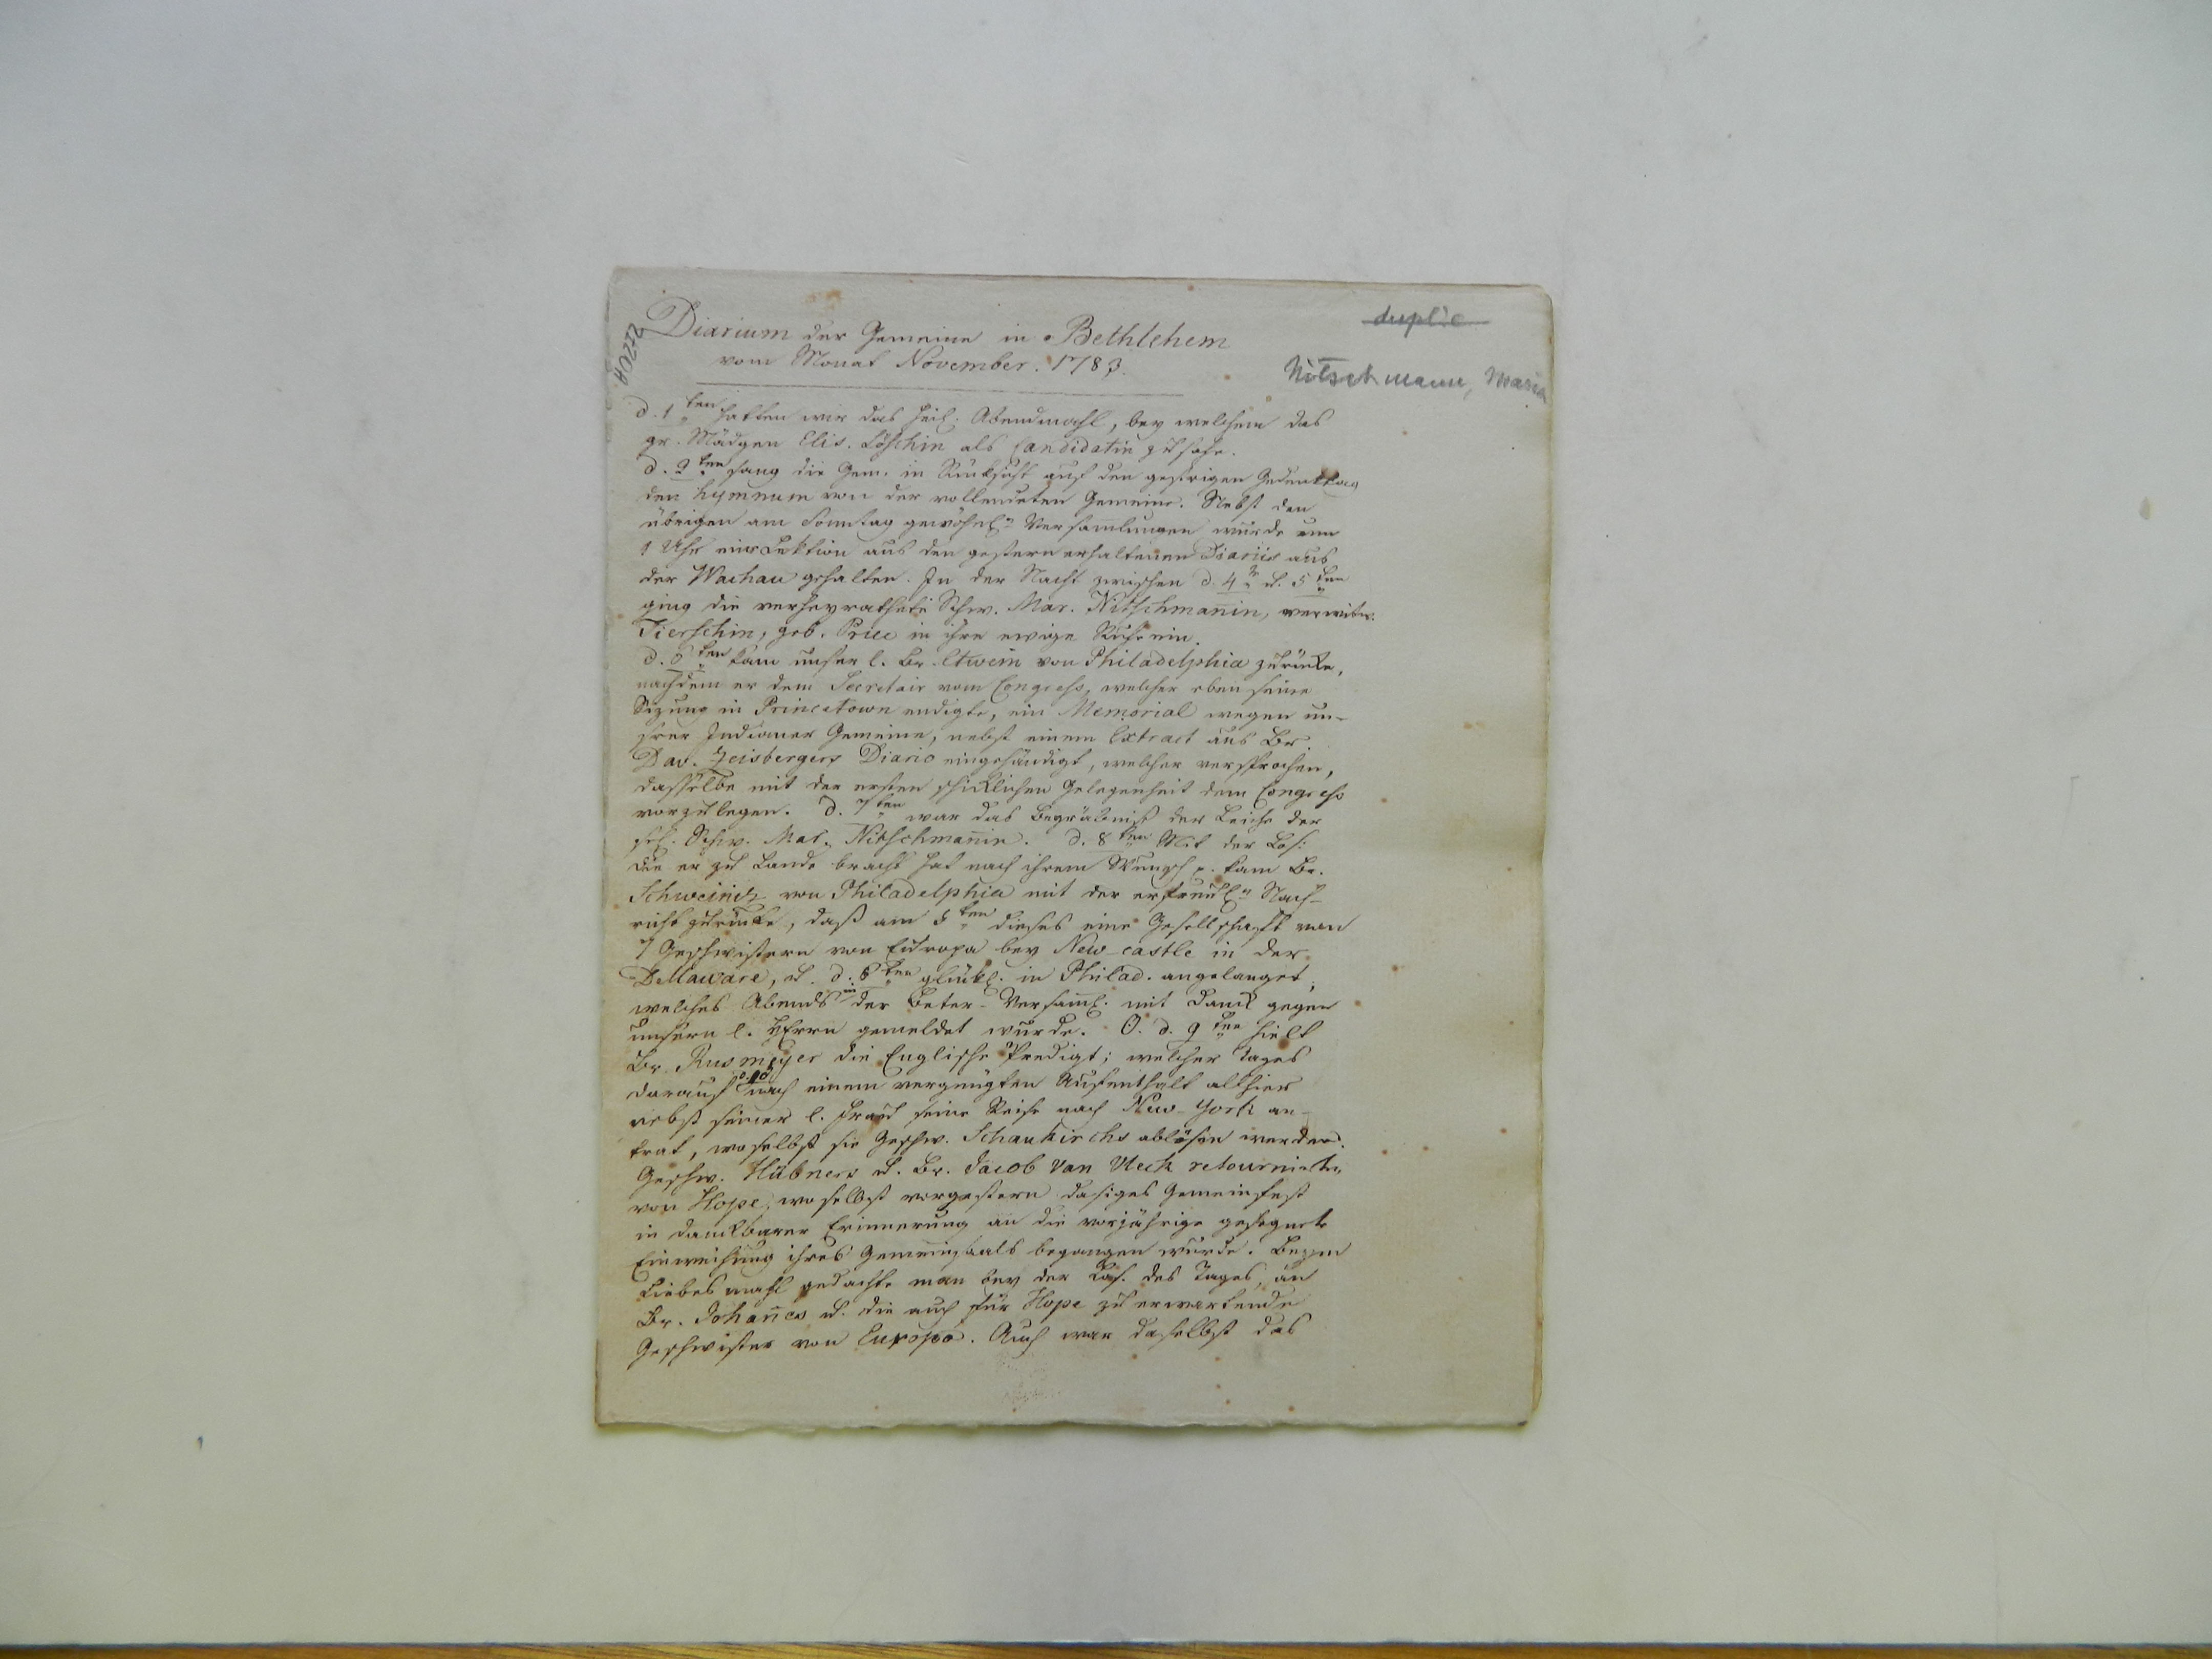 Diarium der Gemeine in Bethlehem
vom Monat November. 1783.
duplic
Nitschmann, Maria
d. 1ten hatten wir das heil. Abendmahl, bey welchem das
gr. Mädgen Elis. Löschin als Candidatin zusahe.
d. 2ten sang die Gem. in Rücksicht auf den gestrigen Gedenktag
den hymnum von der vollendeten Gemeine. Nebst den
übrigen am Sonntag gewöhnln Versam̄lungen wurde um
1 Uhr eine Lektion aus den gestern erhaltenen Diariis aus
der Wachau gehalten. In der Nacht zwischen d. 4n u. 5ten
ging die verheyrathete Schw. Mar. Nitschman̄in, verwitw.
Tierschin, geb. Price in ihre ewige Ruhe ein.
d. 6ten kam unser l. Br. Etwein von Philadelphia zurücke,
nachdem er dem Secretair vom Congress, welcher eben seine
Sizung in Princetown endigte, ein Memorial wegen un-
srer Indianer Gemeine, nebst einem Extract aus Br.
Dav. Zeisbergers Diario eingehändigt, welcher versprochen,
dasselbe mit der ersten schicklichen Gelegenheit dem Congress
vorzulegen. d. 7ten war das Begräbniß der Leiche der
sel. Schw. Mar. Nitschman̄in. d. 8ten Mit der Los:
die er zu Lande bracht hat nach ihrem Wunsch p. kam Br.
Schweiniz von Philadelphia mit der erfreuln Nach-
richt zurücke, daß am 5ten dieses eine Gesellschaft von
7 Geschwistern von Europa bey New-castle in der
Dellaware, u. d. 6ten glückl. in Philad. angelanget,
welches Abends in der Beter-Versam̄l. mit Dank gegen
unsern l. HErrn gemeldet wurde. O. d. 9ten hielt
Br. Rusmeyer die Englische Predigt; welcher Tages
darauf d. 10 nach einem vergnügten Aufenthalt alhier
nebst seiner l. Frau seine Reise nach New-York an-
trat, woselbst sie Geschw. Schaukirchs ablösen werden.
Geschw. Hübners u. Br. Jacob Van Vleck retournirten
von Hope, woselbst vorgestern dasiges Gemeinfest
in dankbarer Erinnerung an die vorjährige gesegnete
Einweihung ihres Gemeinsaals begangen wurde. Beym
Liebesmahl gedachte man bey der Los. des Tages, an
Br. Johan̄es u. die auch für Hope zu erwartende
Geschwister von Europa. Auch war daselbst das